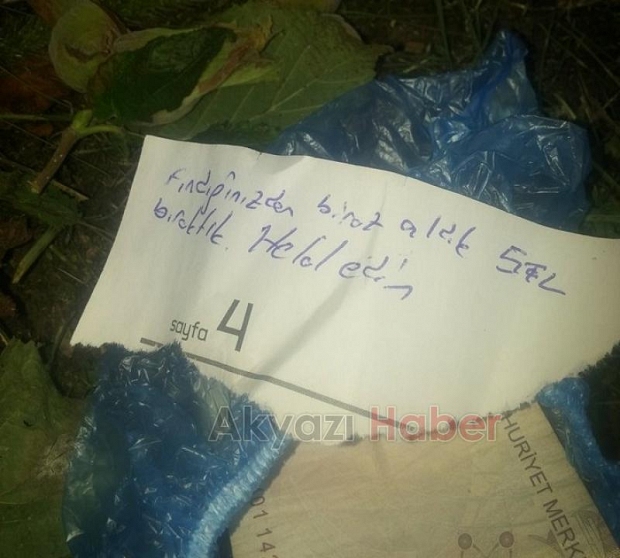 Fındığınızdan biraz aldık 5TL
bıraktık. Helal edin
sayfa 4
Akyazı Haber
HURİYET MERK
01 14